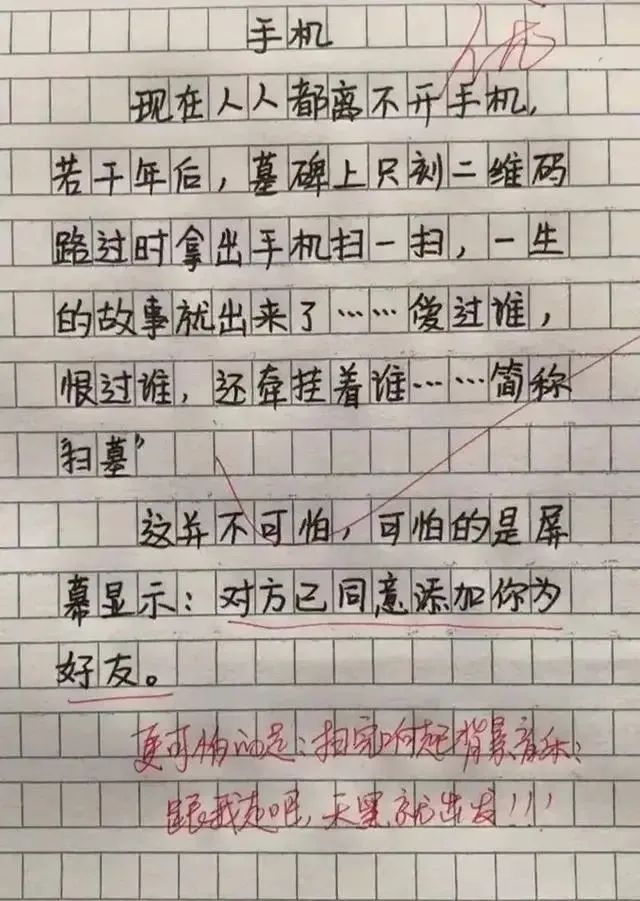 手机
优
现在人人都离不开手机,
若干年后，墓碑上只刻二维码
路过时拿出手机扫一扫，一生
的故事就出来了……爱过谁，
恨过谁，还牵挂着谁……简称
“扫墓”
这并不可怕，可怕的是屏
幕显示：对方已同意添加你为
好友。
更可怕的是：扫完响起背景音乐：
跟我走吧，天黑就出发！！！